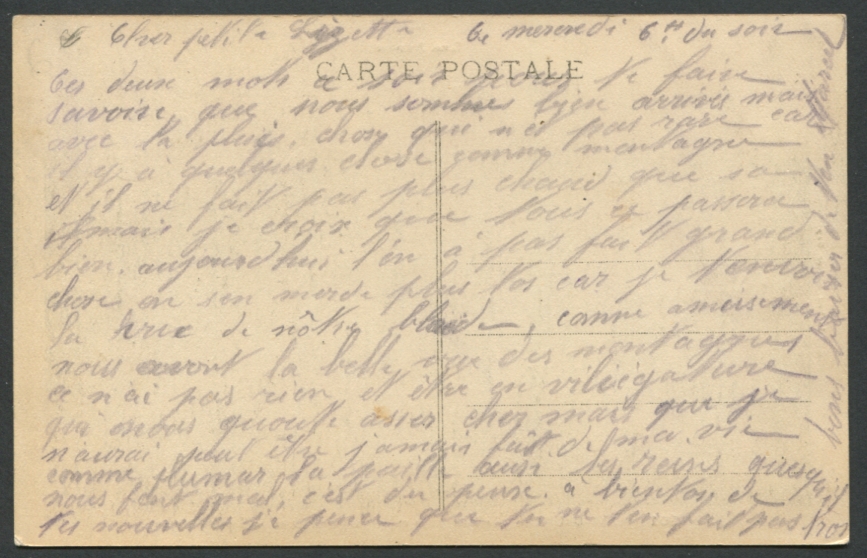 Cher petite Lizette Ce mercredi 6 H. du soir
CARTE POSTALE
Ces deux mots a te faire
savoire que nous sommes bjen arrivés mais
avec la pluis. chose qui n'es pas rare car
il y a quelques chose comme montagne
et il ne fait pas plus chaud que sa
mais je choix que tous se passera
bien. aujourd'hui l'on a pas fait grand
chose on sen merde plus tos car je t'envois
la de nôtre , comme amusement
nous avont la belle vue des montagnes
ce n'ai pas rien et être en viligature
qui nous quoute asser cher mais que je
n'aurai peut être jamais fait de ma vie
comme la paille aussi les reins
nous font mal c'est du a bientos de
tes nouvelles j'é pense que tu ne t'en fait pas
bons baiser de ton